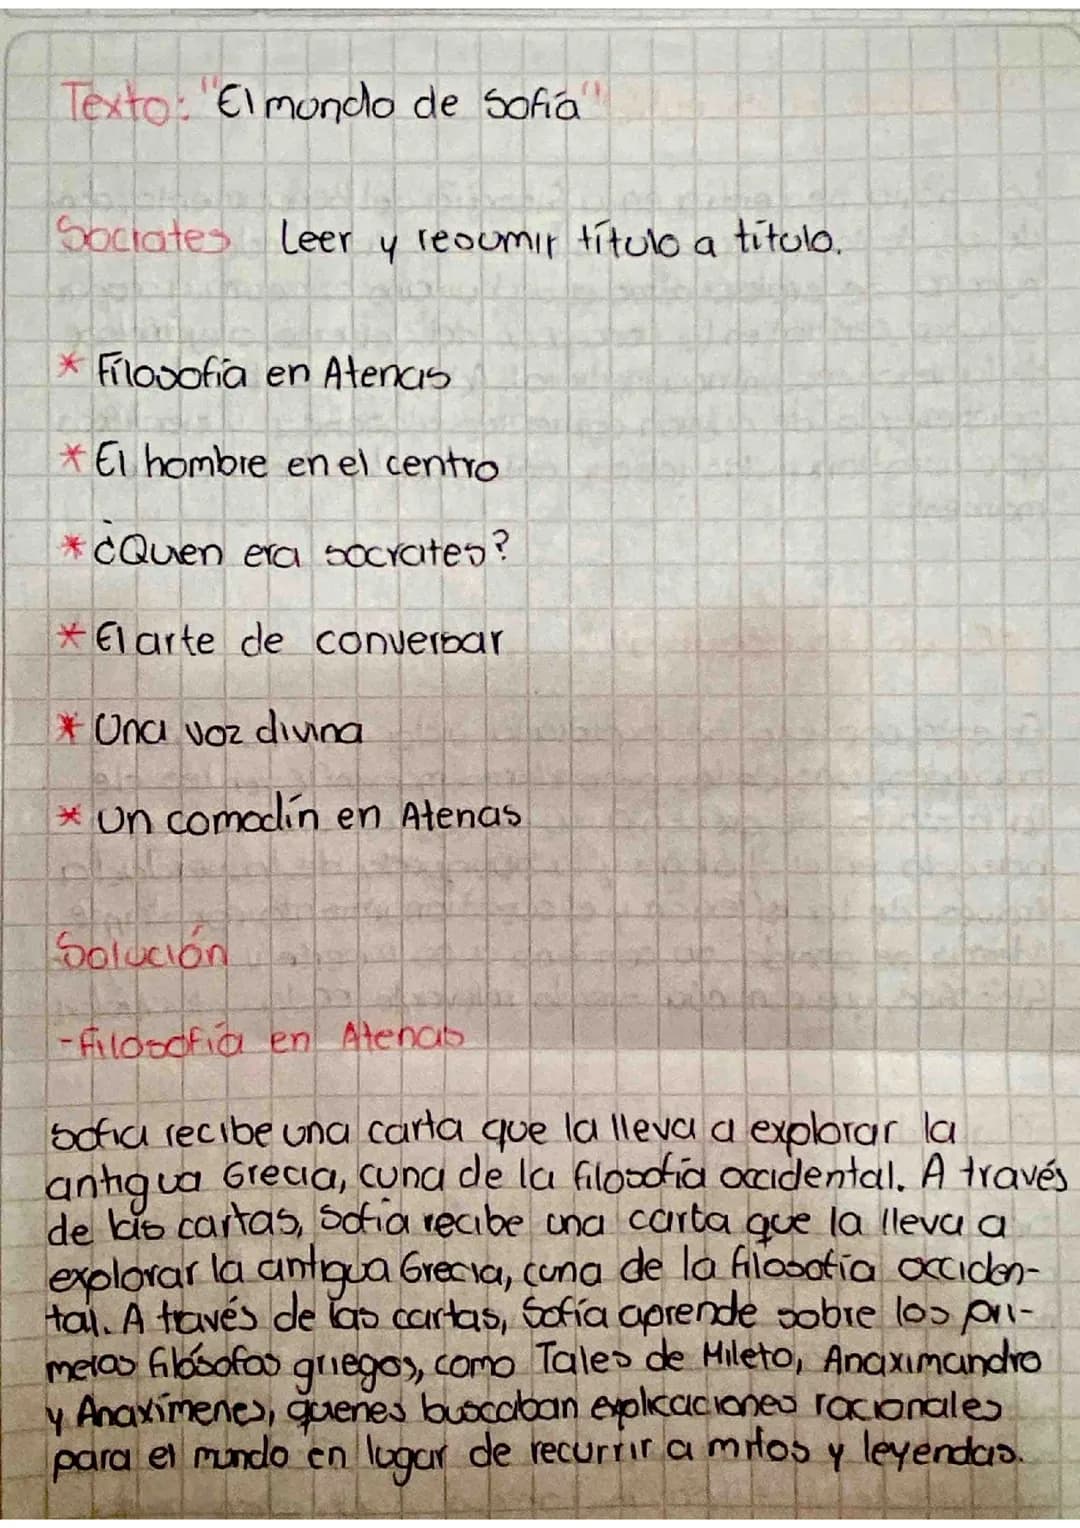 Texto: "El mundo de Sofía"
Sociates Leer y resumir título a título.
* Filosofía en Atenas
* El hombre en el centro
* ¿Quien era socrates?
* El arte de conversar
* Una voz divina
* Un comodín en Atenas
Solución
- Filosofía en Atenas
Sofia recibe una carta que la lleva a explorar la
antigua Grecia, cuna de la filosofía occidental. A través
de las cartas, Sofía recibe una carta que la lleva a
explorar la antigua Grecia, cuna de la filosofía occiden-
tal. A través de las cartas, Sofía aprende sobre los pri-
meros filósofos griegos, como Tales de Mileto, Anaximandro
y Anaxímenes, quienes buscaban explicaciones racionales
para el mundo en lugar de recurrir a mitos y leyendas.